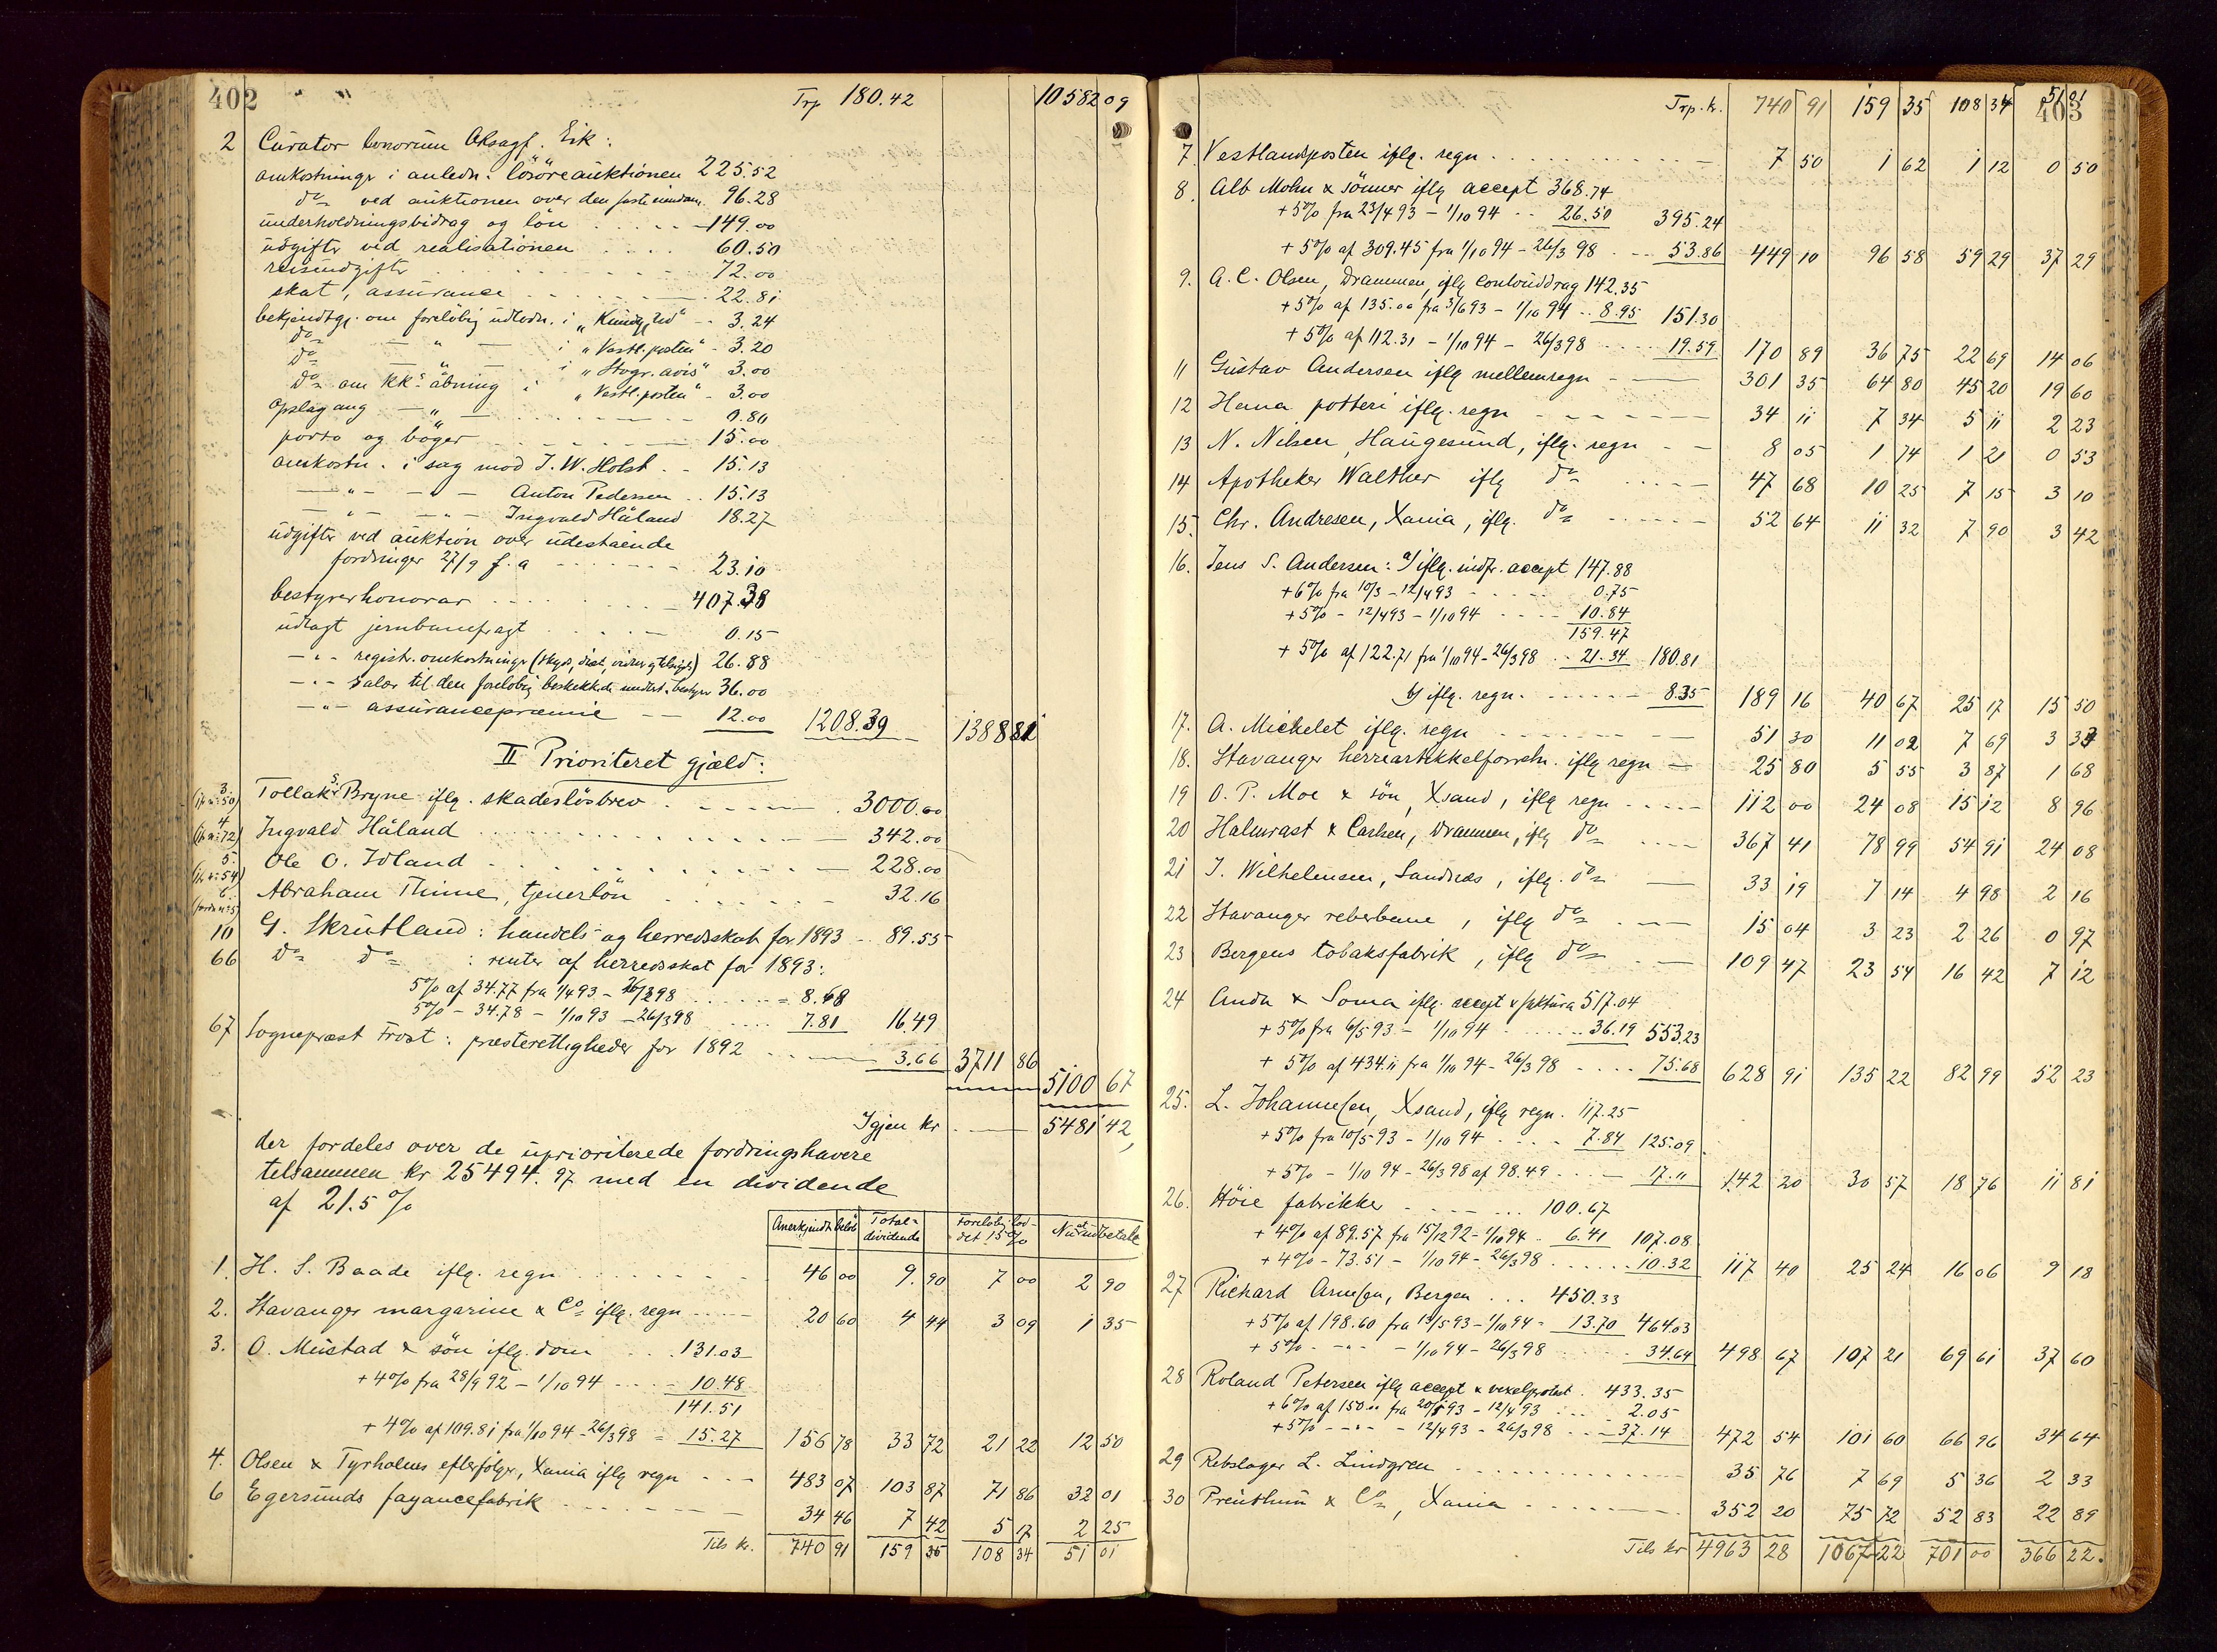 402
Trp 180.42 10582 09
2 Curator bonorum Oksagf. Eik:
omkostninger i anledn. lösöreauktionen 225.52
do ved auktionen over den faste eiendom. 96.28
underholdningsbidrag og lön 149.00
udgifter ved realisationen 60.50
reiseudgifter 72.00
skat, assurance 22.81
bekjendtgj. om foreløbig udlodn. i „Kundg.tid" 3.24
do — „ — i „Vestl.posten" 3.20
do — „ — i „Stvgr. avis" 3.00
do om kks åbning i „Vestl.posten" 3.00
opslag ang. — „ — 0.80
porto og bøger 15.00
omkostn. i sag mod J. W. Holst 15.13
— „ — — „ — Anton Pedersen 15.13
— „ — — „ — Ingvald Håland 18.27
udgifter ved auktion over udestående
fordringer 27/9 f. a 23.10
bestyrerhonorar 407.38
udlagt jernbanefragt 0.15
— „ — registr. omkostninger (skyds, diæt, vidner og tilsigt.) 26.88
— „ — salær til den foreløbig beskikkede medbestyrer 36.00
— „ — assurancepræmie 12.00 1208.39 1388 81
II Prioriteret gjæld:
3 (jfr. n: 50) Tollak S. Bryne iflg. skadesløsbrev 3000.00
4 (jfr. n: 72) Ingvald Håland 342.00
5. (jfr. n: 54) Ole O. Idland 228.00
6 Abraham Thime, tjenerlön 32.16
10 G. Skrutland: handels- og herredsskat for 1893 89.55
66 do do : renter af herredsskat for 1893:
5% af 34.77 fra 1/4 93 – 26/3 98 = 8.68
5% – 34.78 – 1/10 93 – 26/3 98 7.81 16.49
67 Sogneprest Frost: presterettigheder for 1892 3.66 3711 86
5100 67
Igjen kr 5481 42,
der fordeles over de uprioriterede fordringshavere
tilsammen kr 25494.97 med en dividende
af 21.5 %
Anerkjendt beløb Total-dividende Foreløbig lod-det 15% Nu at udbetale
1. H. S. Baade iflg. regn 46 00 9 90 7 00 2 90
2. Stavanger margarine & Co iflg. regn 20 60 4 44 3 09 1 35
3. O. Mustad & sön iflg. dom 131.03
+ 4% fra 28/9 92 – 1/10 94 10.48
141.51
+ 4% af 109.81 fra 1/10 94 – 26/3 98 = 15.27 156 78 33 72 21 22 12 50
4. Olsen & Tyrholms efterfølger, Xania iflg regn 483 07 103 87 71 86 32 01
6 Egersunds fayancefabrik 34 46 7 42 5 17 2 25
Tils kr. 740 91 159 35 108 34 51 01
403
Trp. k. 740 91 159 35 108 34 51 01
7 Vestlandsposten iflg. regn 7 50 1 62 1 12 0 50
8. Alb Mohn & sönner iflg accept 368.74
+ 5% fra 23/4 93 – 1/10 94 26.50 395.24
+ 5% af 309.45 fra 1/10 94 – 26/3 98 53.86 449 10 96 58 59 29 37 29
9. A. C. Olsen, Drammen, iflg contoutdrag 142.35
+ 5% af 135.00 fra 3/6 93 – 1/10 94 8.95 151.30
+ 5% af 112.31 – 1/10 94 – 26/3 98 19.59 170 89 36 75 22 69 14 06
11 Gustav Andersen iflg mellemregn 301 35 64 80 45 20 19 60
12 Hana potteri iflg. regn 34 11 7 34 5 11 2 23
13 N. Nilsen, Haugesund, iflg. regn 8 05 1 74 1 21 0 53
14 Apotheker Walther iflg do 47 68 10 25 7 15 3 10
15. Chr. Andresen, Xania, iflg. do 52 64 11 32 7 90 3 42
16. Jens S. Andersen: a/ iflg. indfr. accept 147.88
+ 6% fra 10/3 – 12/4 93 0.75
+ 5% – 12/4 93 – 1/10 94 10.84
159.47
+ 5% af 122.71 fra 1/10 94 – 26/3 98 21.34 180.81
b/ iflg. regn. 8.35 189 16 40 67 25 17 15 50
17. A. Michelet iflg. regn 51 30 11 02 7 69 3 33
18. Stavanger herreartikkelforretn. iflg regn 25 80 5 55 3 87 1 68
19 O. P. Moe & sön, Xsand, iflg regn 112 00 24 08 15 12 8 96
20 Halmrast & Carlsen, Drammen, iflg do 367 41 78 99 54 91 24 08
21 J. Wilhelmsen, Sandnæs, iflg. do 33 19 7 14 4 98 2 16
22 Stavanger reberbane, iflg do 15 04 3 23 2 26 0 97
23 Bergens tobaksfabrik, iflg do 109 47 23 54 16 42 7 12
24 Anda & Soma iflg. accept & faktura 517.04
+ 5% fra 6/5 93 – 1/10 94 36.19 553.23
+ 5% af 434.11 fra 1/10 94 – 26/3 98 75.68 628 91 135 22 82 99 52 23
25. L. Johannesen, Xsand, iflg regn. 117.25
+ 5% fra 10/5 93 – 1/10 94 7.84 125.09
+ 5% – 1/10 94 – 26/3 98 af 98.49 17.11 142 20 30 57 18 76 11 81
26. Höie fabrikker 100.67
+ 4% af 89.57 fra 15/12 92 – 1/10 94 6.41 107.08
+ 4% – 73.51 – 1/10 94 – 26/3 98 10.32 117 40 25 24 16 06 9 18
27 Richard Arnesen, Bergen 450.33
+ 5% af 198.60 fra 13/5 93 – 1/10 94 = 13.70 464.03
+ 5% – „ – – 1/10 94 – 26/3 98 34.64 498 67 107 21 69 61 37 60
28 Roland Petersen iflg accept & vexelprotest. 433.35
+ 6% af 150.00 fra 20/1 93 – 12/4 93 2.05
+ 5% – „ – – 12/4 93 – 26/3 98 37.14 472 54 101 60 66 96 34 64
29 Rebslager L. Lindgren 35 76 7 69 5 36 2 33
30 Preuthun & Co, Xania 352 20 75 72 52 83 22 89
Tils kr 4963 28 1067 22 701 00 366 22.